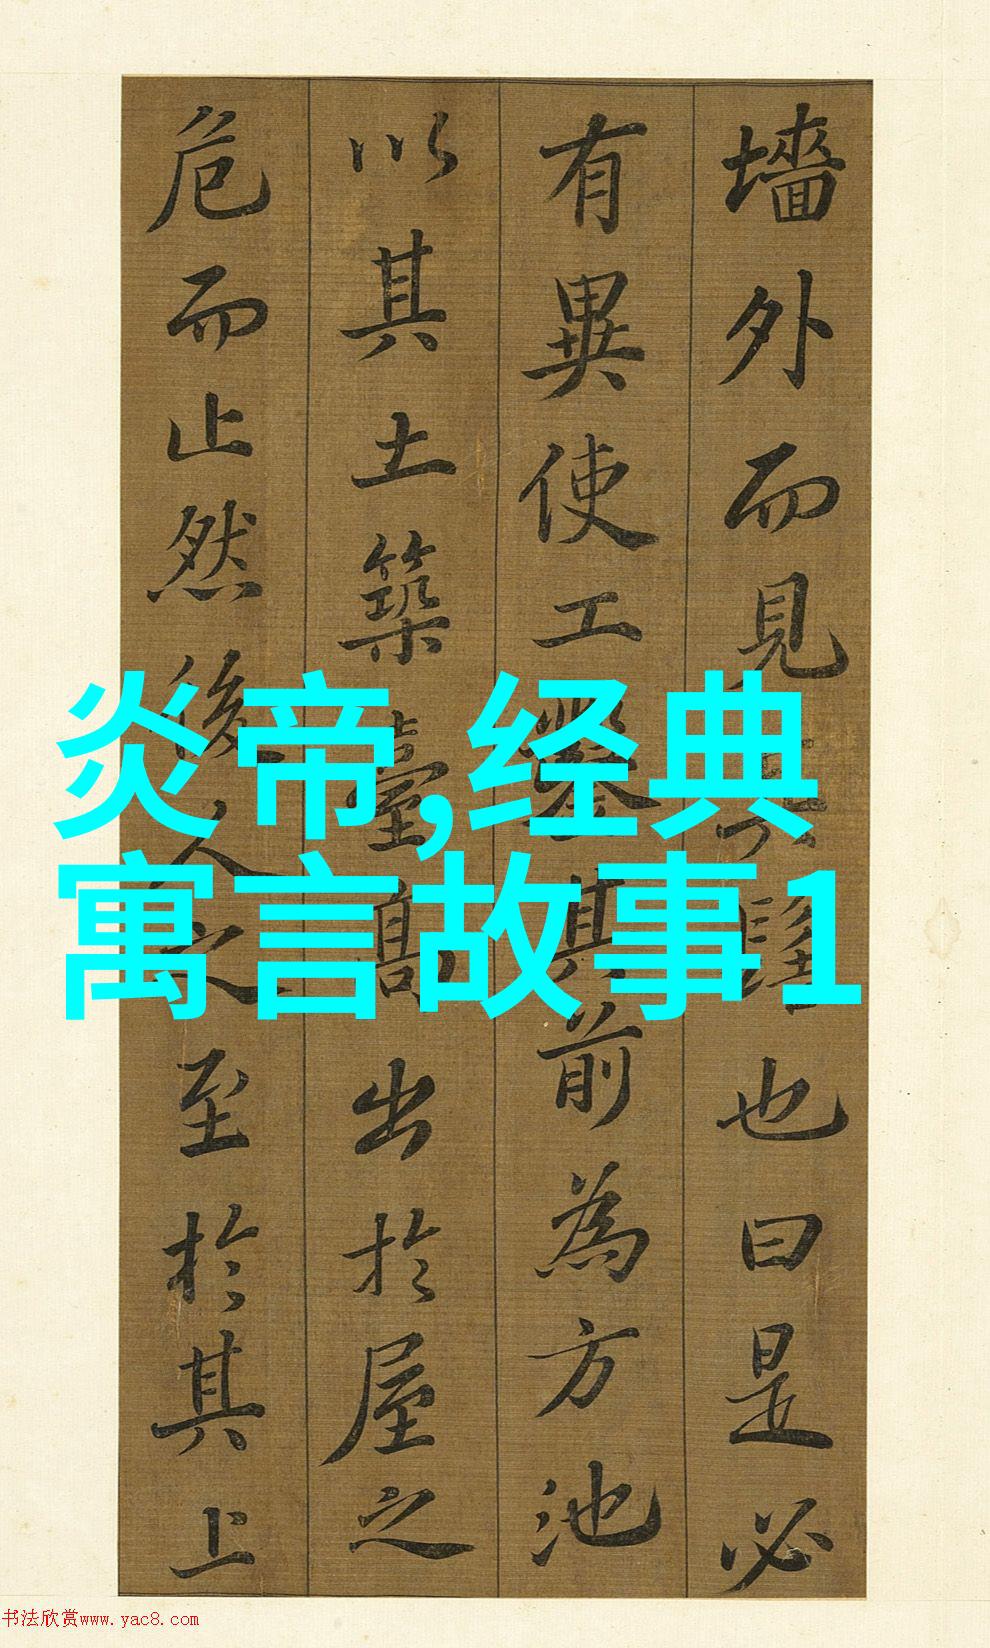 墻外而見其髻也曰是必
有異使工鑿其前為方池
以其土築臺高出於屋之
危而止然後人之至於其上
炎帝,经典
寓言故事1
书法欣赏www.yac8.com